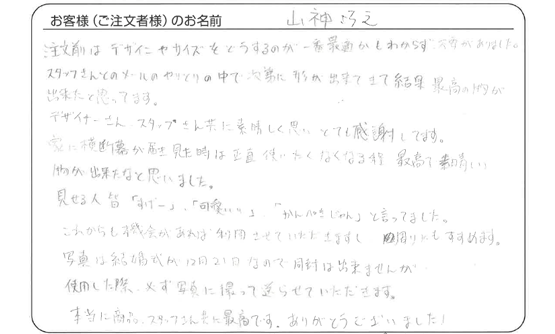 お客様（ご注文者様）のお名前 山神
注文前は デザインやサイズを どうするのが一番最適かもわからず 不安がありました。
スタッフさんとのメールのやりとりの中で 次第に形が出来てきて 結果 最高の物が
出来たと思ってます。
デザイナーさん、スタッフさん共に素晴しく思い とても感謝してます。
実に横断幕が届き 見た時は正直 使いたくなくなる程 最高で素晴しい
物が出来たなと思いました。
見せる人皆「すげー」、「可愛いい」「かんぺきじゃん」と言ってました。
これからも機会があれば利用させていただきますし 周りにもすすめます。
写真は結婚式が12月21日なので 同封は出来ませんが、
使用した際、必ず写真に撮って送らせていただきます。
本当に商品、スタッフさん共に最高です。ありがとうございました！